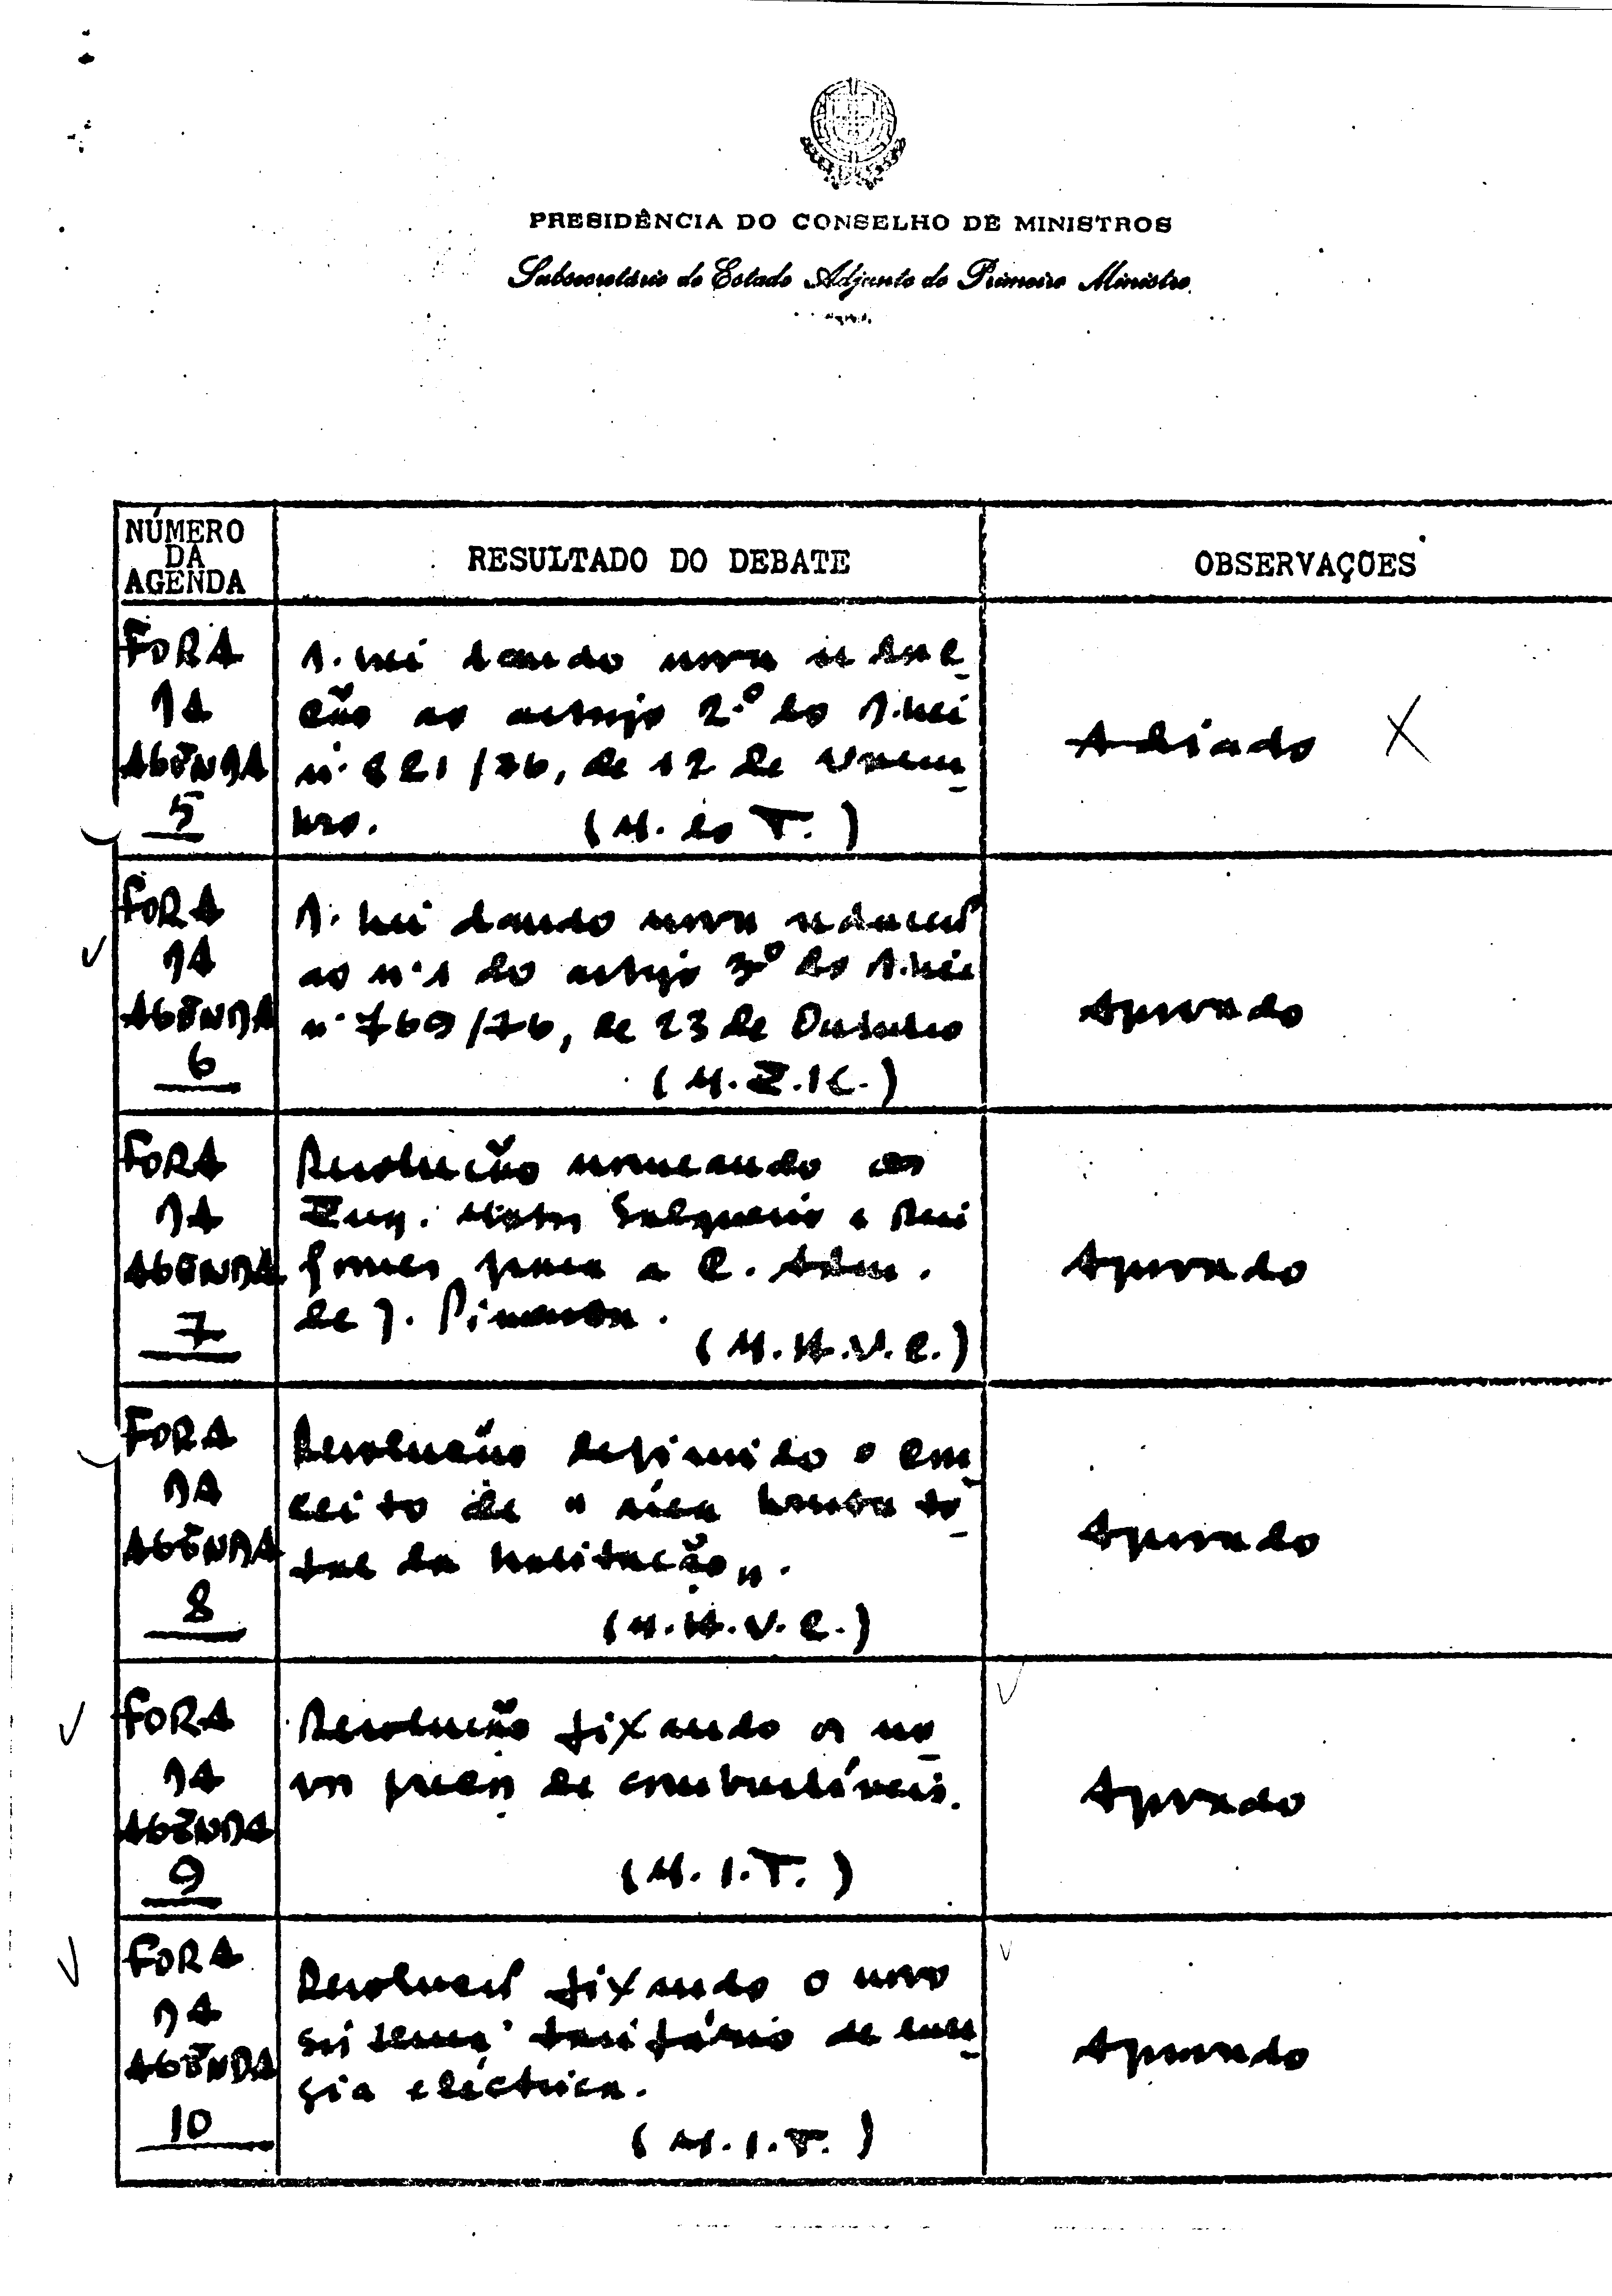 PRESIDÊNCIA DO CONSELHO DE MINISTROS
Subsecretário de Estado Adjunto do Primeiro Ministro
NÚMERO
DA
AGENDA
RESULTADO DO DEBATE
OBSERVAÇÕES
FORA
DA
AGENDA
5
D. Lei dando nova redac-
ção ao artigo 2.º do D. Lei
nº 821/76, de 12 de Novem-
bro. (M. do T.)
Adiado X
FORA
DA
AGENDA
6
D. Lei dando nova redacção
ao nº 1 do artigo 3º do D. Lei
nº 769/76, de 23 de Outubro
(M.E.I.C.)
Aprovado
FORA
DA
AGENDA
7
Resolução nomeando os
Eng. Salgueiro e Rui
Gomes para a C. Adm.
de J. Pimenta.
(M.H.U.C.)
Aprovado
FORA
DA
AGENDA
8
Resolução definindo o con-
ceito de "área bruta to-
tal da habitação".
(M.H.U.C.)
Aprovado
FORA
DA
AGENDA
9
Resolução fixando os no-
vos preços de combustíveis.
(M.I.T.)
Aprovado
FORA
DA
AGENDA
10
Resolução fixando o novo
sistema tarifário de ener-
gia eléctrica.
(M.I.T.)
Aprovado